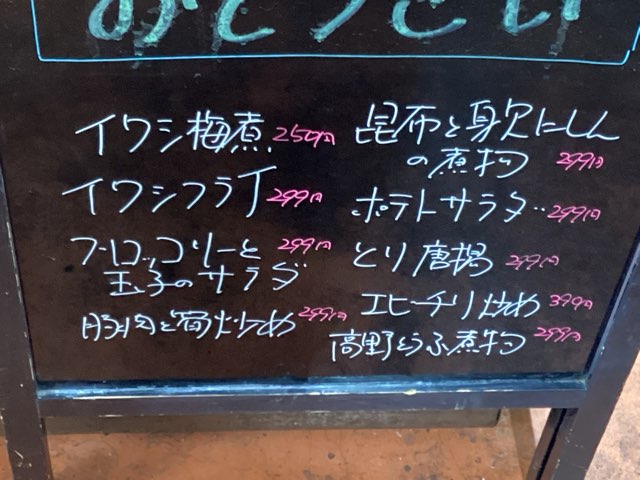 おそうざい
イワシ梅煮 250円
イワシフライ 299円
ブロッコリーと 299円
玉子のサラダ
豚肉と筍炒め 299円
昆布と身欠にしん
の煮物 299円
ポテトサラダ 299円
とり唐揚 299円
エビチリ炒め 399円
高野とうふ煮物 299円